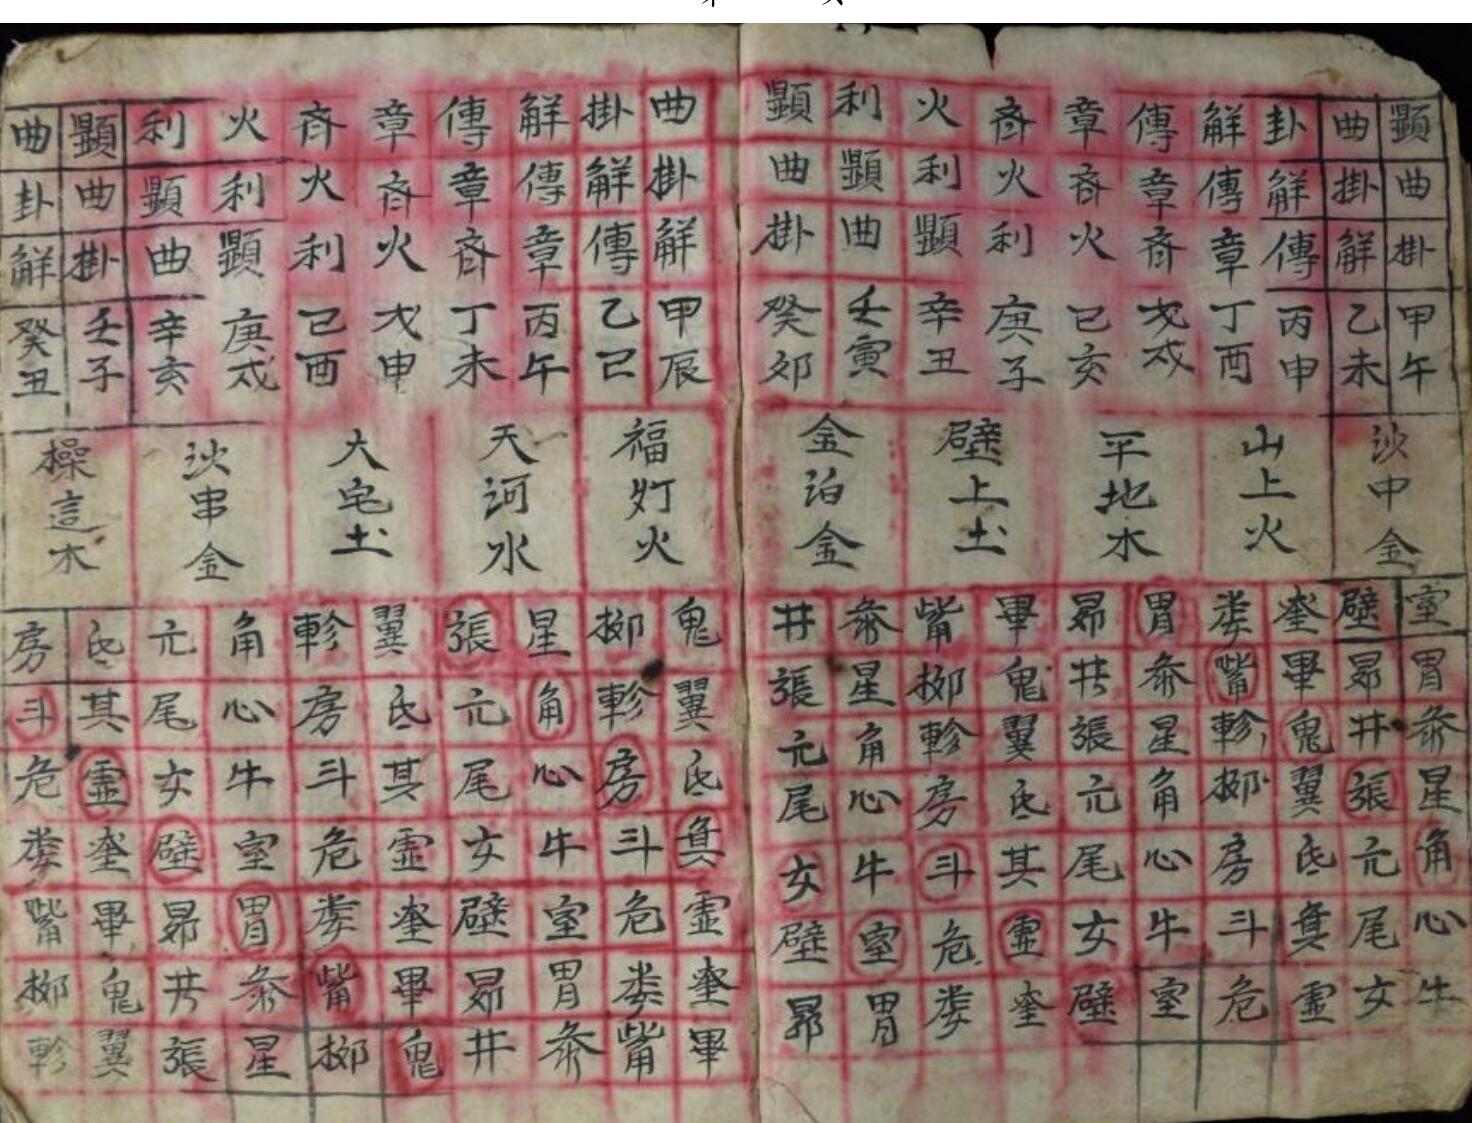 顯曲掛甲午
曲掛解乙未
卦解傳丙申
解傳章丁酉
傳章斉戊戌
章斉火己亥
斉火利庚子
火利顯辛丑
利顯曲壬寅
顯曲掛癸卯
沙中金
山上火
平地木
壁上土
金泊金
室胃参星角心牛
壁昴井張亢尾女
奎畢鬼翼氐箕霊
娄觜軫柳房斗危
胃参星角心牛室
昴井張亢尾女壁
畢鬼翼氐其霊奎
觜柳軫房斗危娄
参星角心牛室胃
井張亢尾女壁昴
曲掛解甲辰
掛解傳乙巳
解傳章丙午
傳章斉丁未
章斉火戊申
斉火利己酉
火利顯庚戌
利顯曲辛亥
顯曲掛壬子
曲卦解癸丑
福灯火
天河水
大宅土
沙串金
橾這木
鬼翼氐箕霊奎畢
柳軫房斗危娄觜
星角心牛室胃参
張亢尾女壁昴井
翼氐其霊奎畢鬼
軫房斗危娄觜柳
角心牛室胃参星
亢尾女壁昴井張
氐其霊奎畢鬼翼
房斗危娄觜柳軫